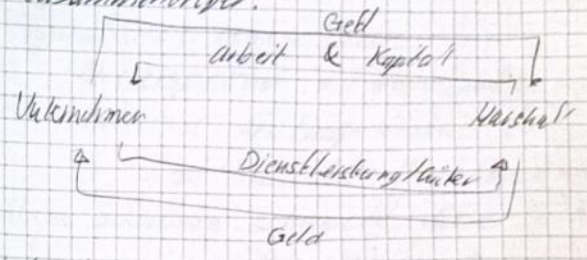 Geld
Arbeit & Kapital
Unternehmen
Haushalt
Dienstleistung/Güter
Geld